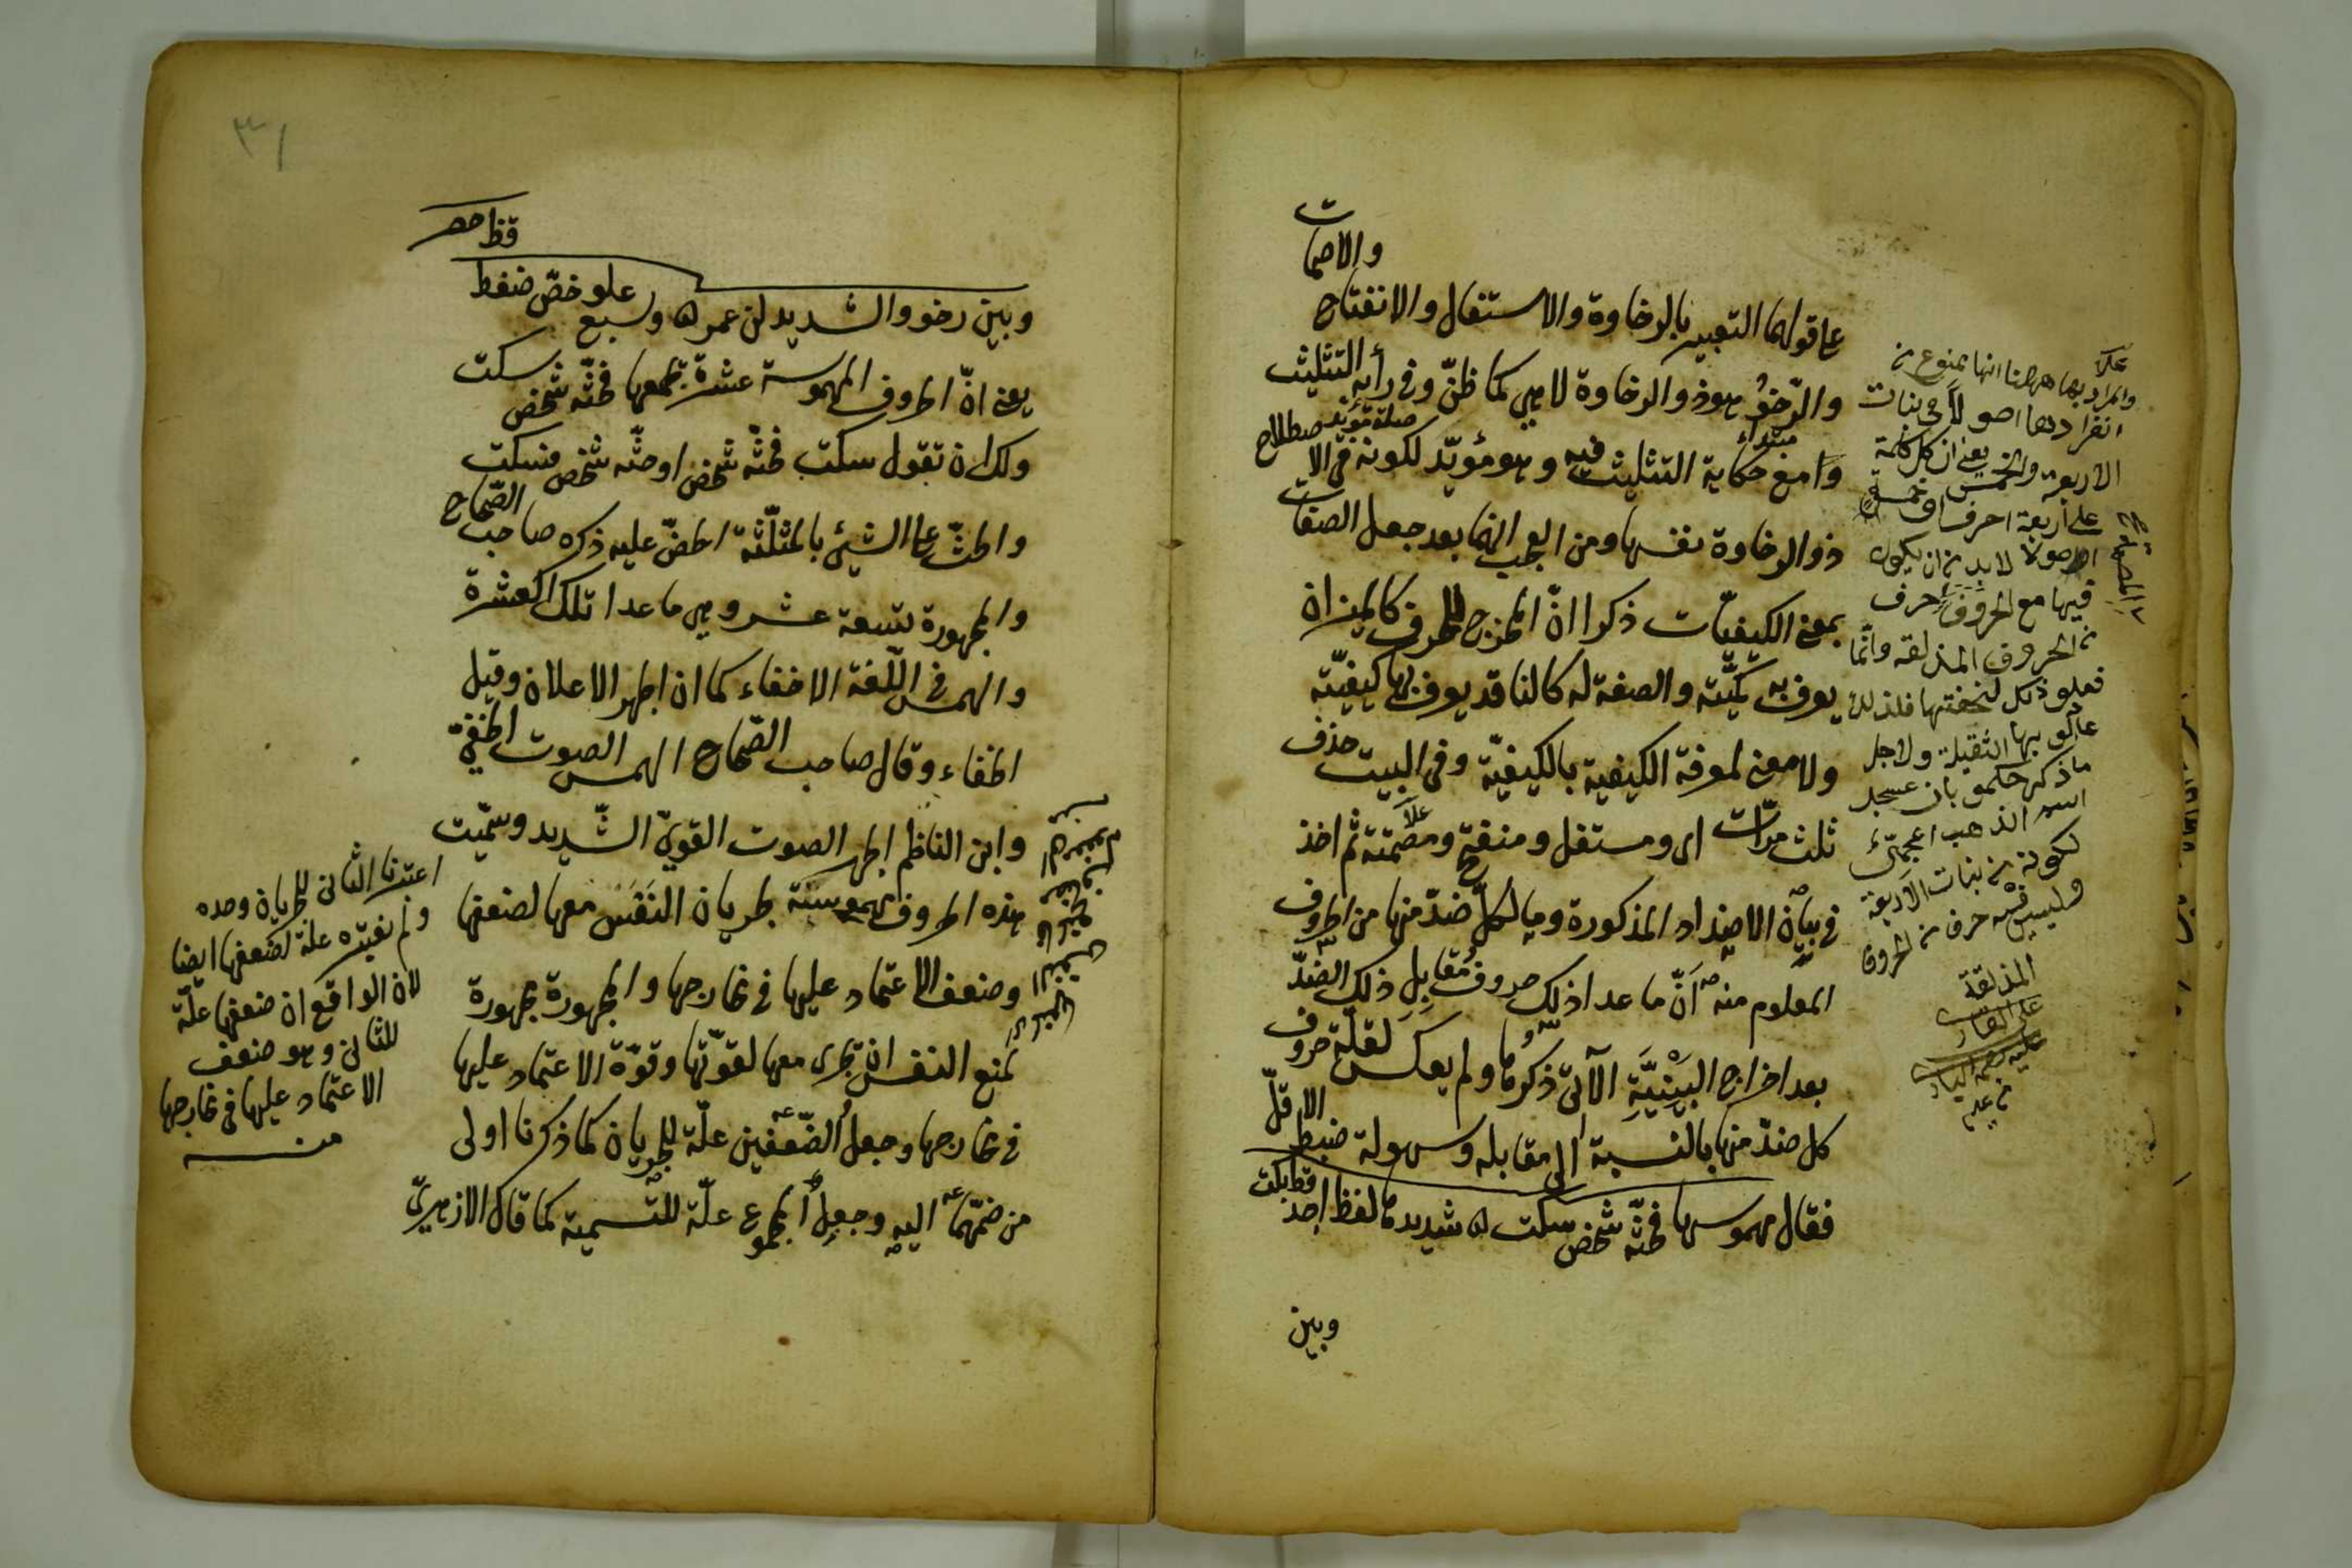 والاصمات
على قولها التعبير بالرخاوة والاستفال والانفتاح
والرّخوُ هو ذو الرخاوة لا هي كما ظنّ وفى رأيه التثليث
وامع حكاية التثليث فيه وهو مؤيّد لكونه فى الاصطلاح
مبتداء
صلة مؤيّد
ذو الرخاوة نفسها ومن العجب انهما بعد جعل الصفات
بمعنى الكيفيّات ذكرا انّ المخرج للحرف كالميزان
يعرف به كميّته والصفة له كالناقد يعرف بها كيفيّته
ولا معنى لمعرفة الكيفية بالكيفيّة وفى البيت حذف
ثلث مرّات اى ومستفل ومنفتح ومصمتة ثم اخذ
فى بيان الاضداد المذكورة وما لكلّ ضدّ منها من الحروف
المعلوم منه انّ ما عدا ذلك حروف مقابل ذلك الضدّ
بعد اخراج البَيْنِيَّةِ الآتى ذكرها ولم يعكس لقلّة حروف
كل ضدّ منها بالنسبة الى مقابله وسهولة ضبط الاقلّ
فقال مهموسها فحثّه شخص سكت شديدها لفظ اجد قط بكت
وبين
والمراد بها ههنا انها ممنوع من
انفرادها اصولا فى بنات
الاربعة والخمس يعنى ان كل كلمة
على اربعة احرف او خمسة
اصولا لا بد من ان يكون
فيها مع الحروف حرف
من الحروف المذلقة وانّما
فعلو ذلك لخفتها فلذلك
عادلو بها الثقيلة ولاجل
ما ذكر حكمو بان عسجد
اسم الذهب اعجمىّ
لكونه من بنات الاربعة
وليس فيه حرف من الحروف
المذلقة
على القارى
عليه رحمة البارى
٣١
قظ خص
وبين رخو والشديد لن عمر وسبع علو خصّ ضغط
يعنى انّ الحروف المهموسة عشرة يجمعها فحثّه شخص سكت
ولك ان تقول سكت فحثّه شخص او حثّه شخص فسكت
والحثّ على الشيئ بالمثلّثة الحضّ عليه ذكره صاحب الصّحاح
والمجهورة تسعة عشر وهى ما عدا تلك العشرة
والهمس فى اللّغة الاخفاء كما ان الجهر الاعلان وقيل
الخفاء وقال صاحب الصّحاح الهمس الصوت الخفىّ
وابن الناظم الجهر الصوت القوىّ الشّديد وسمّيت
هذه الحروف مهموسة لجريان النَفَس معها لضعفها
وضعف الاعتماد عليها فى مخارجها والمجهورة مجهورة
لمنع النفس ان يجرى معها لقوّتها وقوّة الاعتماد عليها
فى مخارجها وجعل الضّعفين علّة للجريان كما ذكرنا اولى
من ضمّهما اليه وجعل المجموع علّة للتسمية كما قال الازميرىّ
اعتبرنا الثانى للجريان وحده
ولم نعتبره علّة لضعفها ايضا
لان الواقع ان ضعفها علّة
للثانى وهو ضعف
الاعتماد عليها فى مخارجها
منه